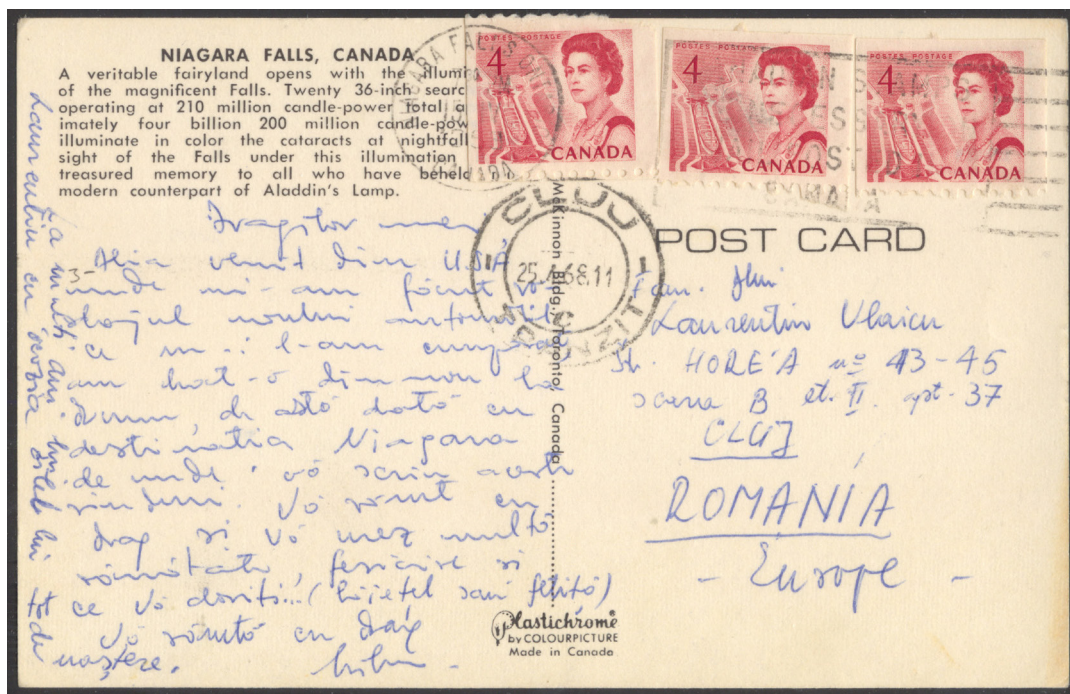 NIAGARA FALLS, CANADA
A veritable fairyland opens with the illumi
of the magnificent Falls. Twenty 36-inch searc
operating at 210 million candle-power total a
imately four billion 200 million candle-pow
illuminate in color the cataracts at nightfal
sight of the Falls under this illumination
treasured memory to all who have beheld
modern counterpart of Aladdin's Lamp.
POSTES POSTAGE
4
CANADA
POSTES POSTAGE
4
CANADA
POSTES POSTAGE
4
CANADA
NIAGARA FALLS
CANADA
CLUJ
25. 68.11
McKinnon Bldg., Toronto, Canada
POST CARD
Dragilor mei
Abia venit din USA
unde mi-am făcut ro-
dajul noului automobil
ce mi l-am cumpărat
am luat-o din nou la
drum, de astă dată cu
destinatia Niagara
de unde vă scriu aceste
rinduri. Vă sărut cu
drag si vă urez multă
sănătate, fericire si
ce vă doriti...(băietel sau fetită)
Vă sărută cu drag
La multi ani
Laurentiu cu ocozia zilei lui
de naștere.
Fam. Jlui
Laurentiu Vlaicu
Str. HOREA no 43-45
scara B et. II. apt. 37
CLUJ
ROMÂNIA
- Europe -
Plastichrome
by COLOURPICTURE
Made in Canada